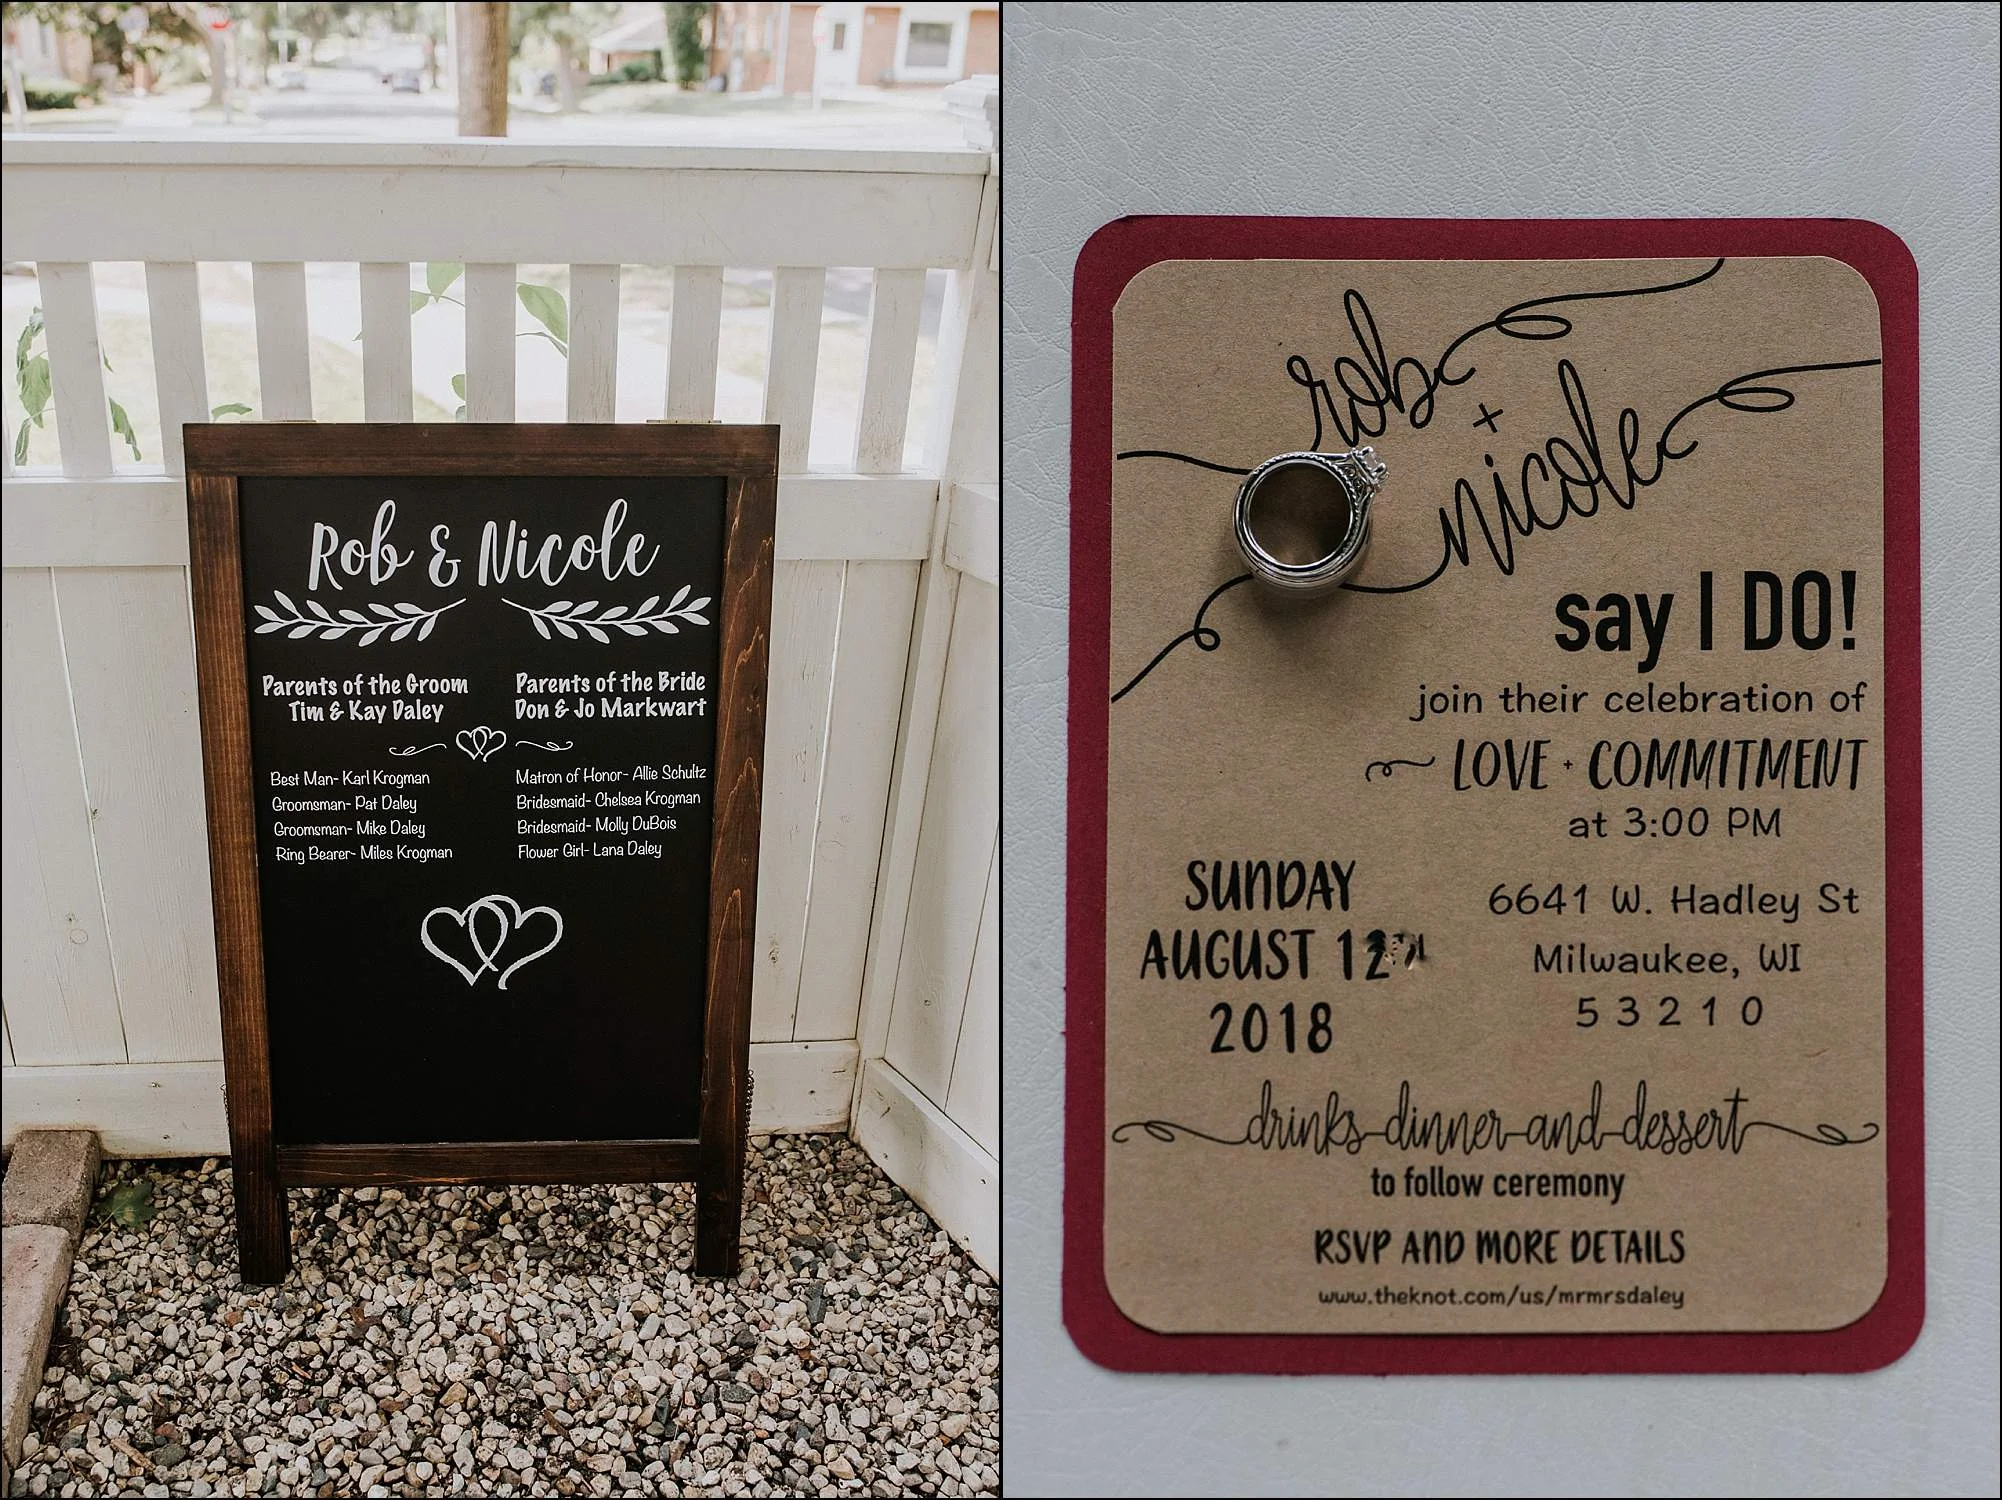 Rob & Nicole
Parents of the Groom
Tim & Kay Daley
Parents of the Bride
Don & Jo Markwart
Best Man- Karl Krogman
Groomsman- Pat Daley
Groomsman- Mike Daley
Ring Bearer- Miles Krogman
Matron of Honor- Allie Schultz
Bridesmaid- Chelsea Krogman
Bridesmaid- Molly DuBois
Flower Girl- Lana Daley
rob
+
nicole
say I DO!
join their celebration of
LOVE + COMMITMENT
at 3:00 PM
SUNDAY
AUGUST 12TH
2018
6641 W. Hadley St
Milwaukee, WI
53210
drinks-dinner-and-dessert
to follow ceremony
RSVP AND MORE DETAILS
www.theknot.com/us/mrmrsdaley